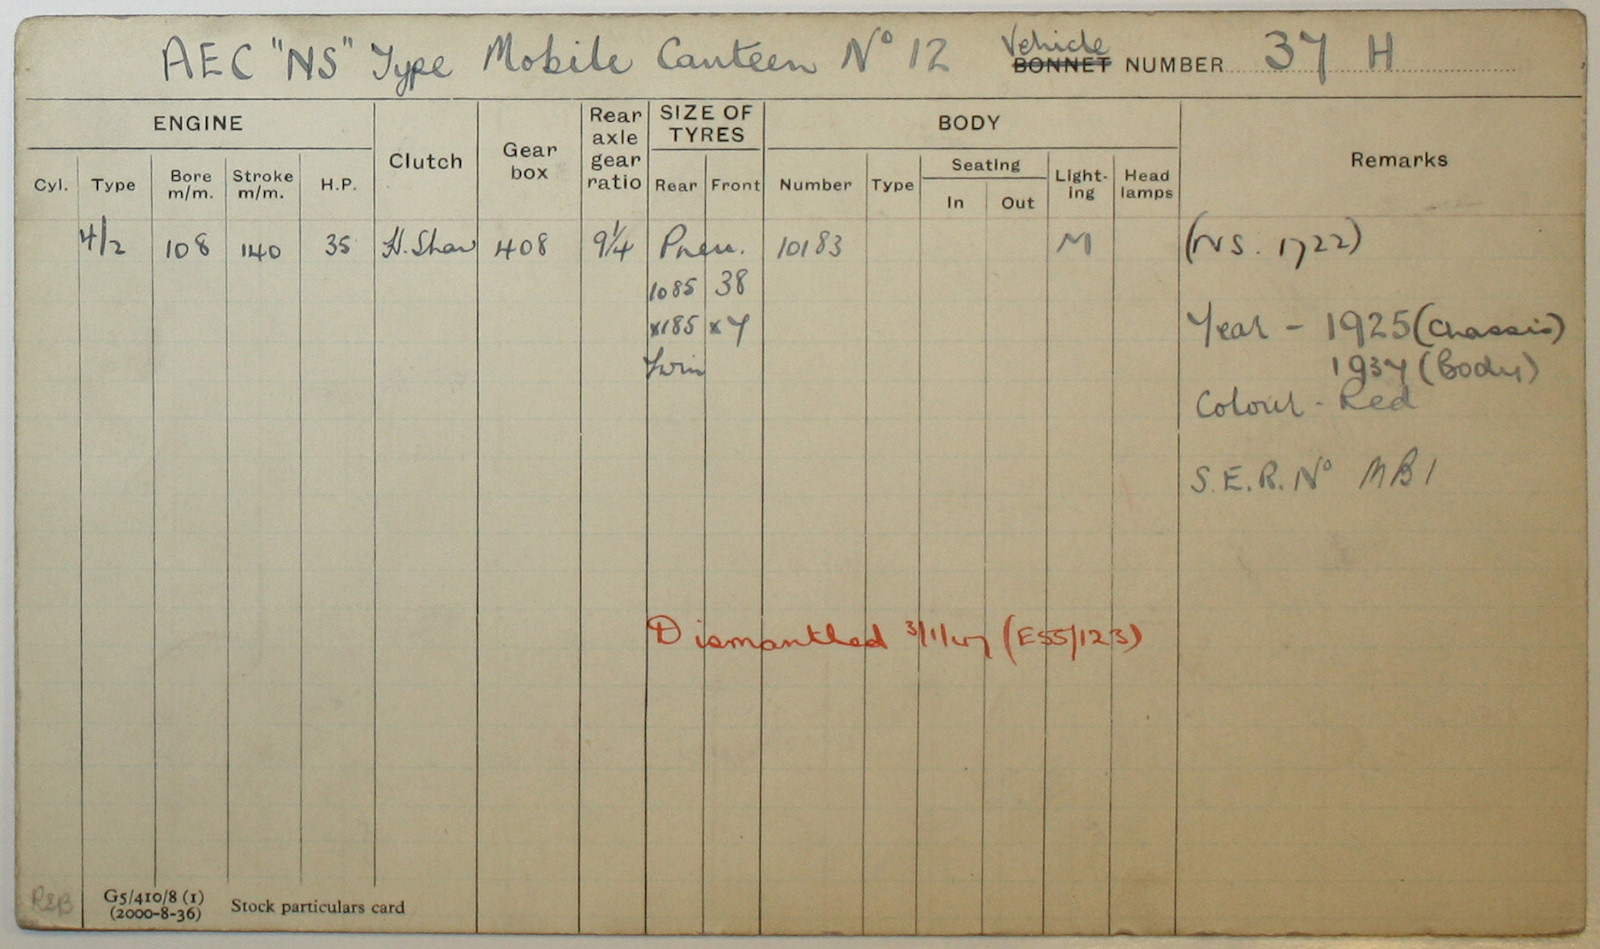 AEC "NS" Type Mobile Canteen No 12 Vehicle BONNET NUMBER 37 H
ENGINE
Clutch
Gear box
Rear axle gear ratio
SIZE OF TYRES
BODY
Remarks
Cyl. Type Bore m/m. Stroke m/m. H.P. Rear Front Number Type Seating In Out Light-ing Head lamps
4/2 108 140 35 H.Shaw 408 9¼ Pneu. 10183 M (NS. 1722)
1085 38
x185 x7 Year - 1925 (Chassis)
Twin 1937 (Body)
Colour - Red
S.E.R. No MB1
Dismantled 3/1/47 (E55/123)
R&B
G5/410/8 (1)
(2000-8-36) Stock particulars card